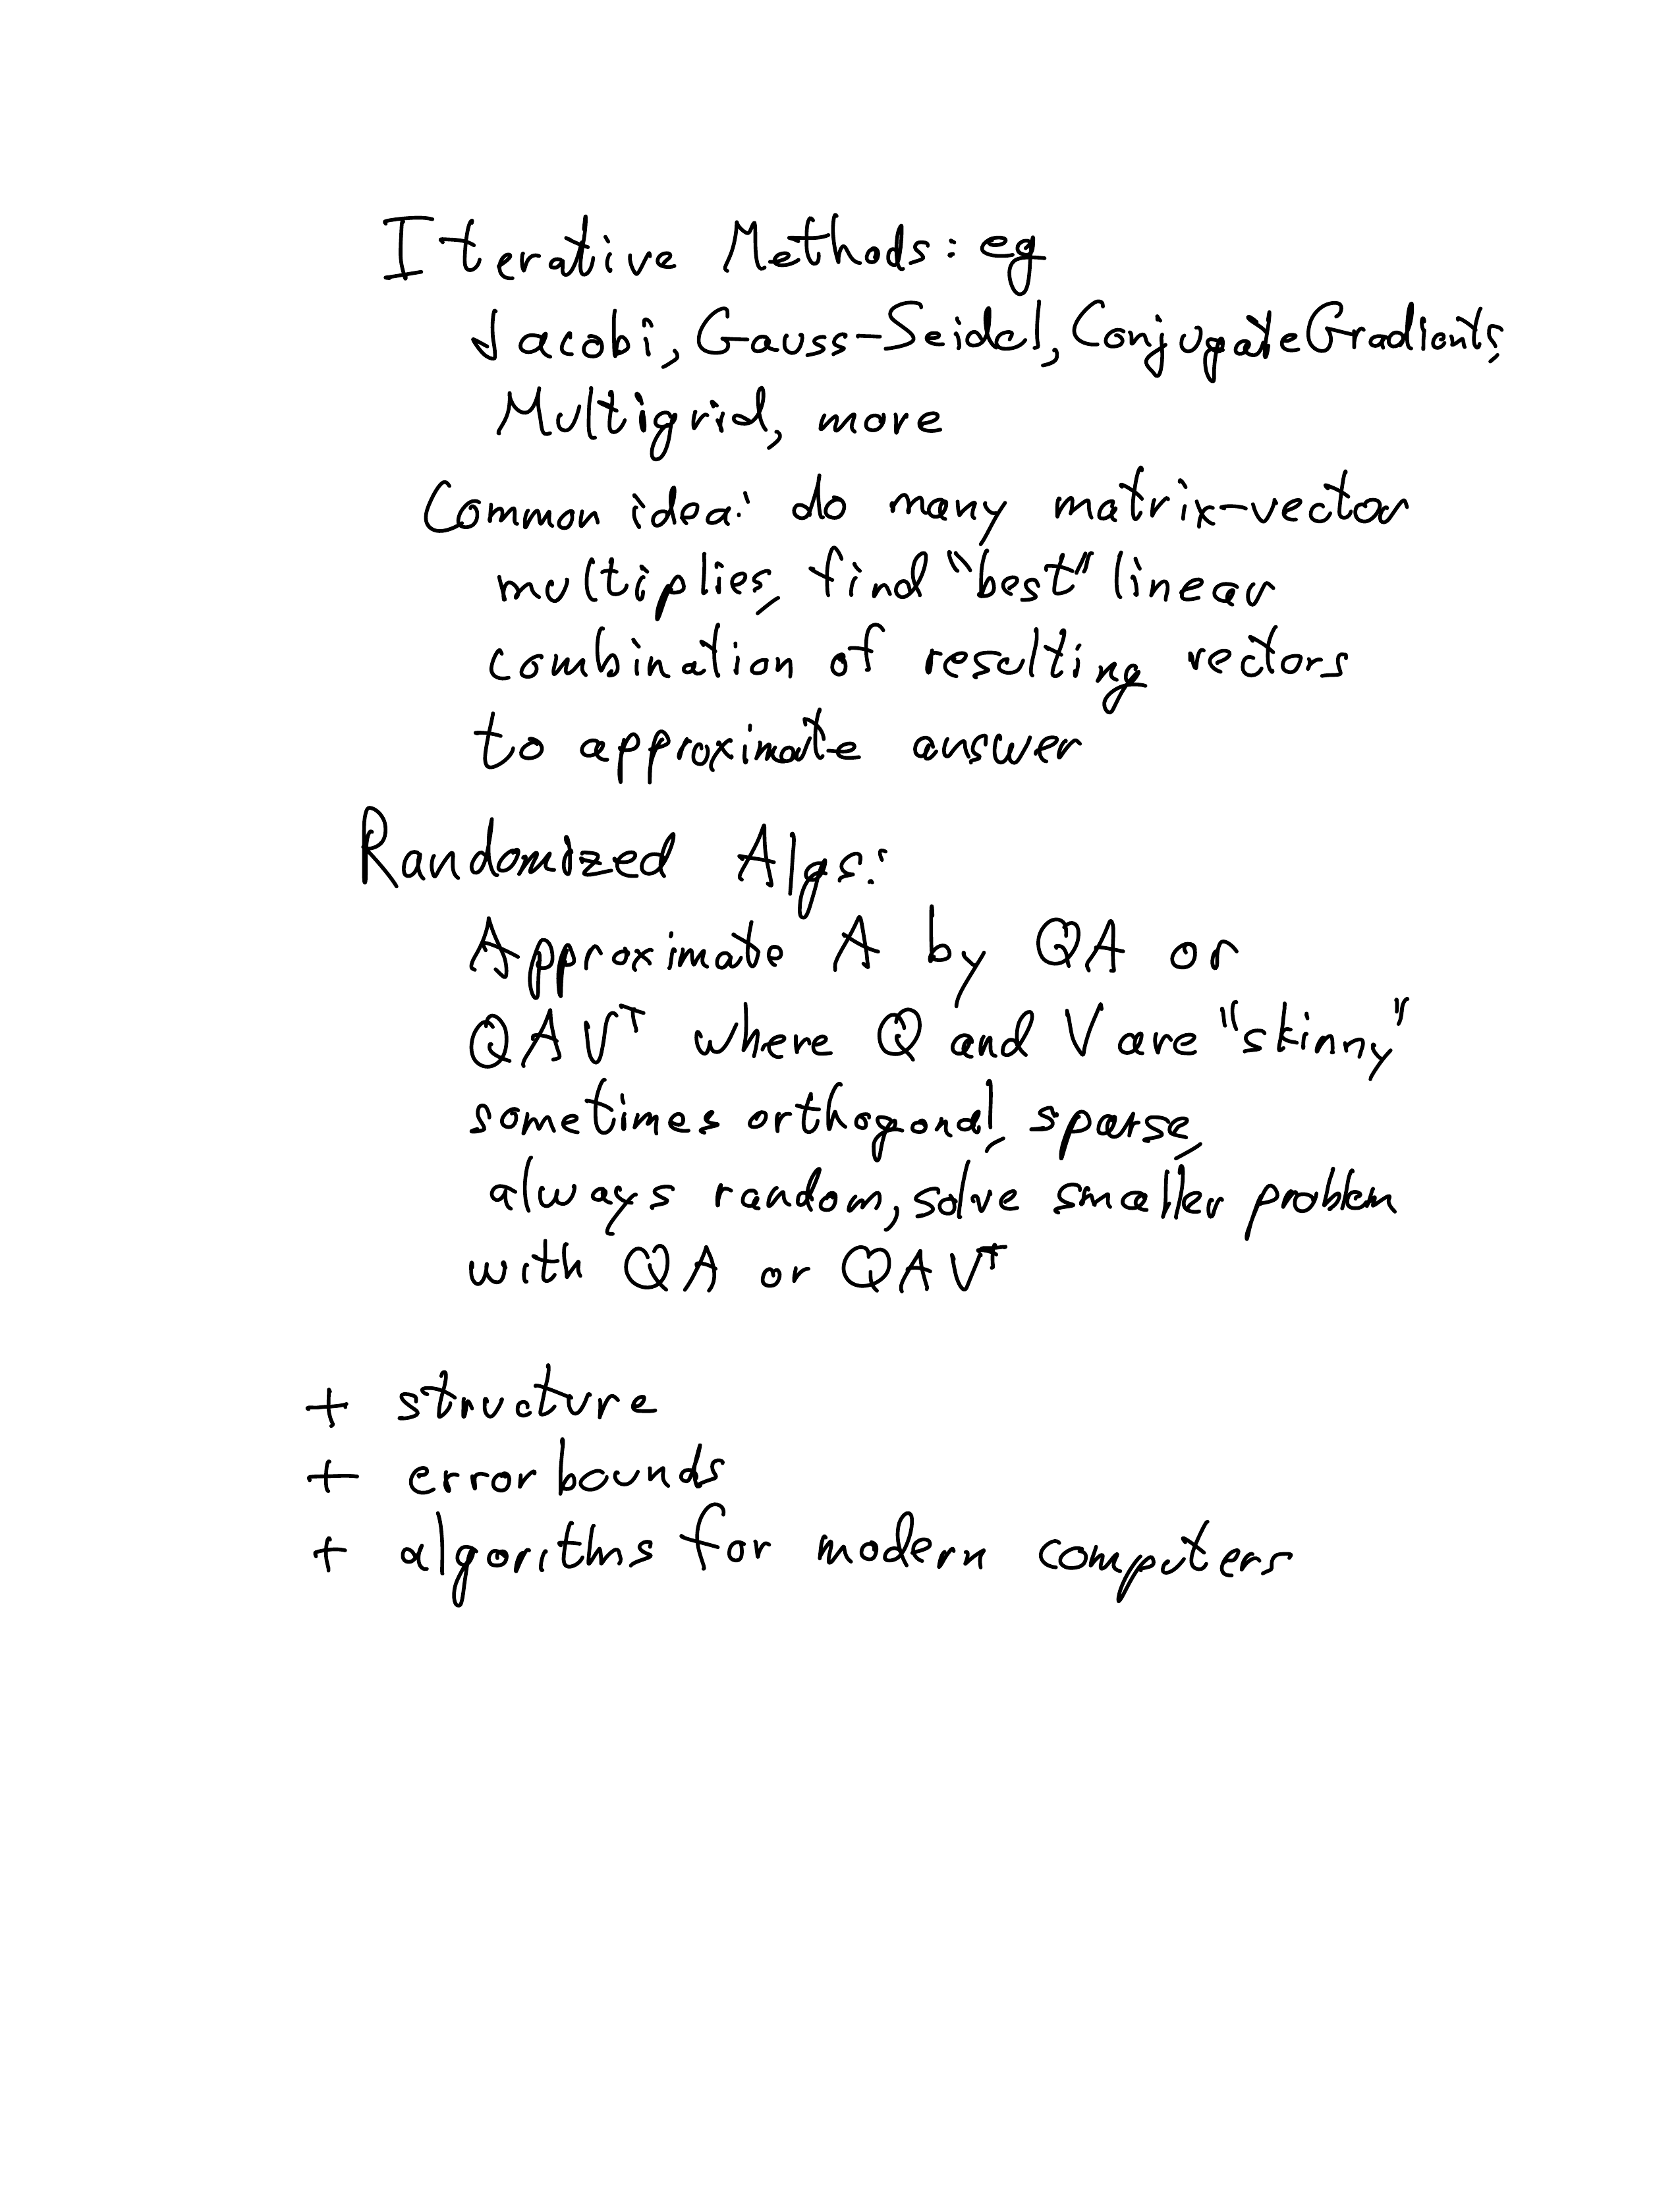 Iterative Methods: eg
Jacobi, Gauss-Seidel, Conjugate Gradients,
Multigrid, more
Common idea: do many matrix-vector
multiplies, find "best" linear
combination of resulting vectors
to approximate answer
Randomized Algs:
Approximate A by QA or
QAVᵀ where Q and V are "skinny"
sometimes orthogonal, sparse,
always random, solve smaller problem
with QA or QAVᵀ
+ structure
+ error bounds
+ algorithms for modern computers